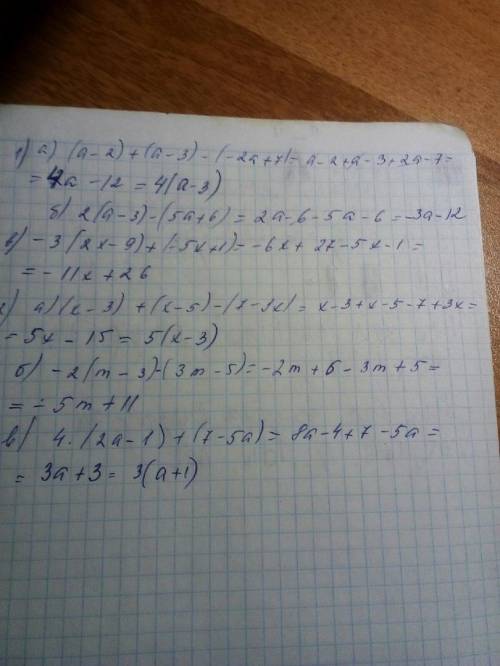 1) а) (a-2)+(a-3)-(-2a+7)= a-2+a-3+2a-7=
=4a-12 = 4(a-3)
б) 2(a-3)-(5a+6)=2a-6-5a-6=-3a-12
в) -3(2x-9)+(-5x+1)=-6x+27-5x-1=
=-11x+26
2) а) (x-3)+(x-5)-(7-3x)=x-3+x-5-7+3x=
=5x-15=5(x-3)
б) -2(m-3)-(3m-5)=-2m+6-3m+5=
=-5m+11
в) 4·(2a-1)+(7-5a)=8a-4+7-5a=
=3a+3=3(a+1)